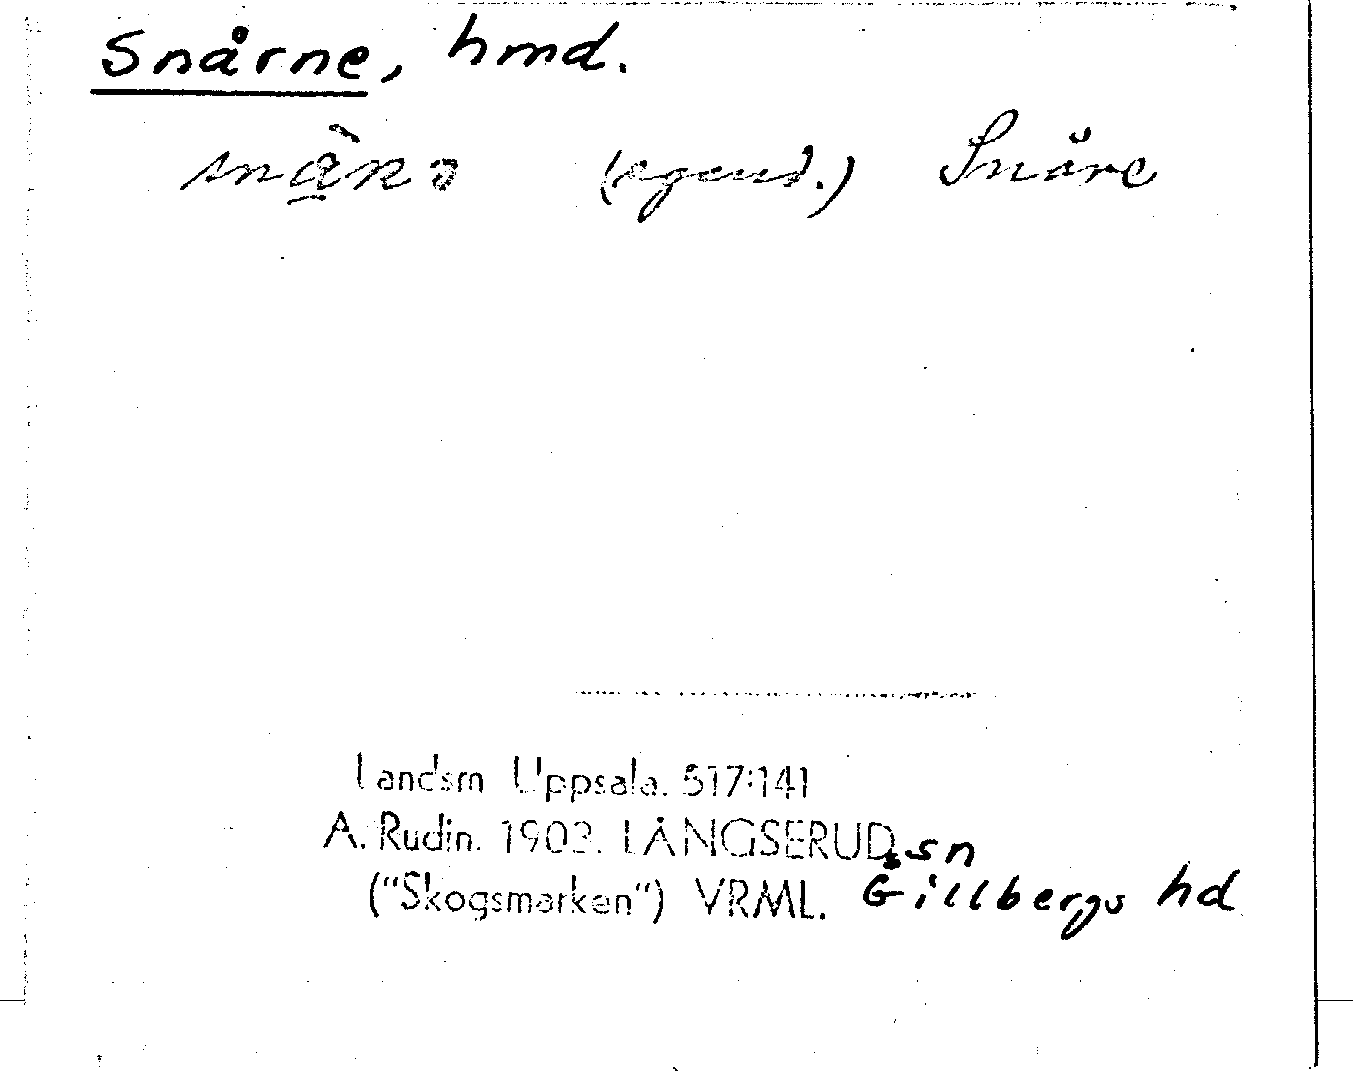 Snårne, hmd.
(egend.) Snåre
Landsm Uppsala. 517:141
A. Rudin. 1903. LÅNGSERUDs sn
("Skogsmarken") VRML. Gillbergs hd